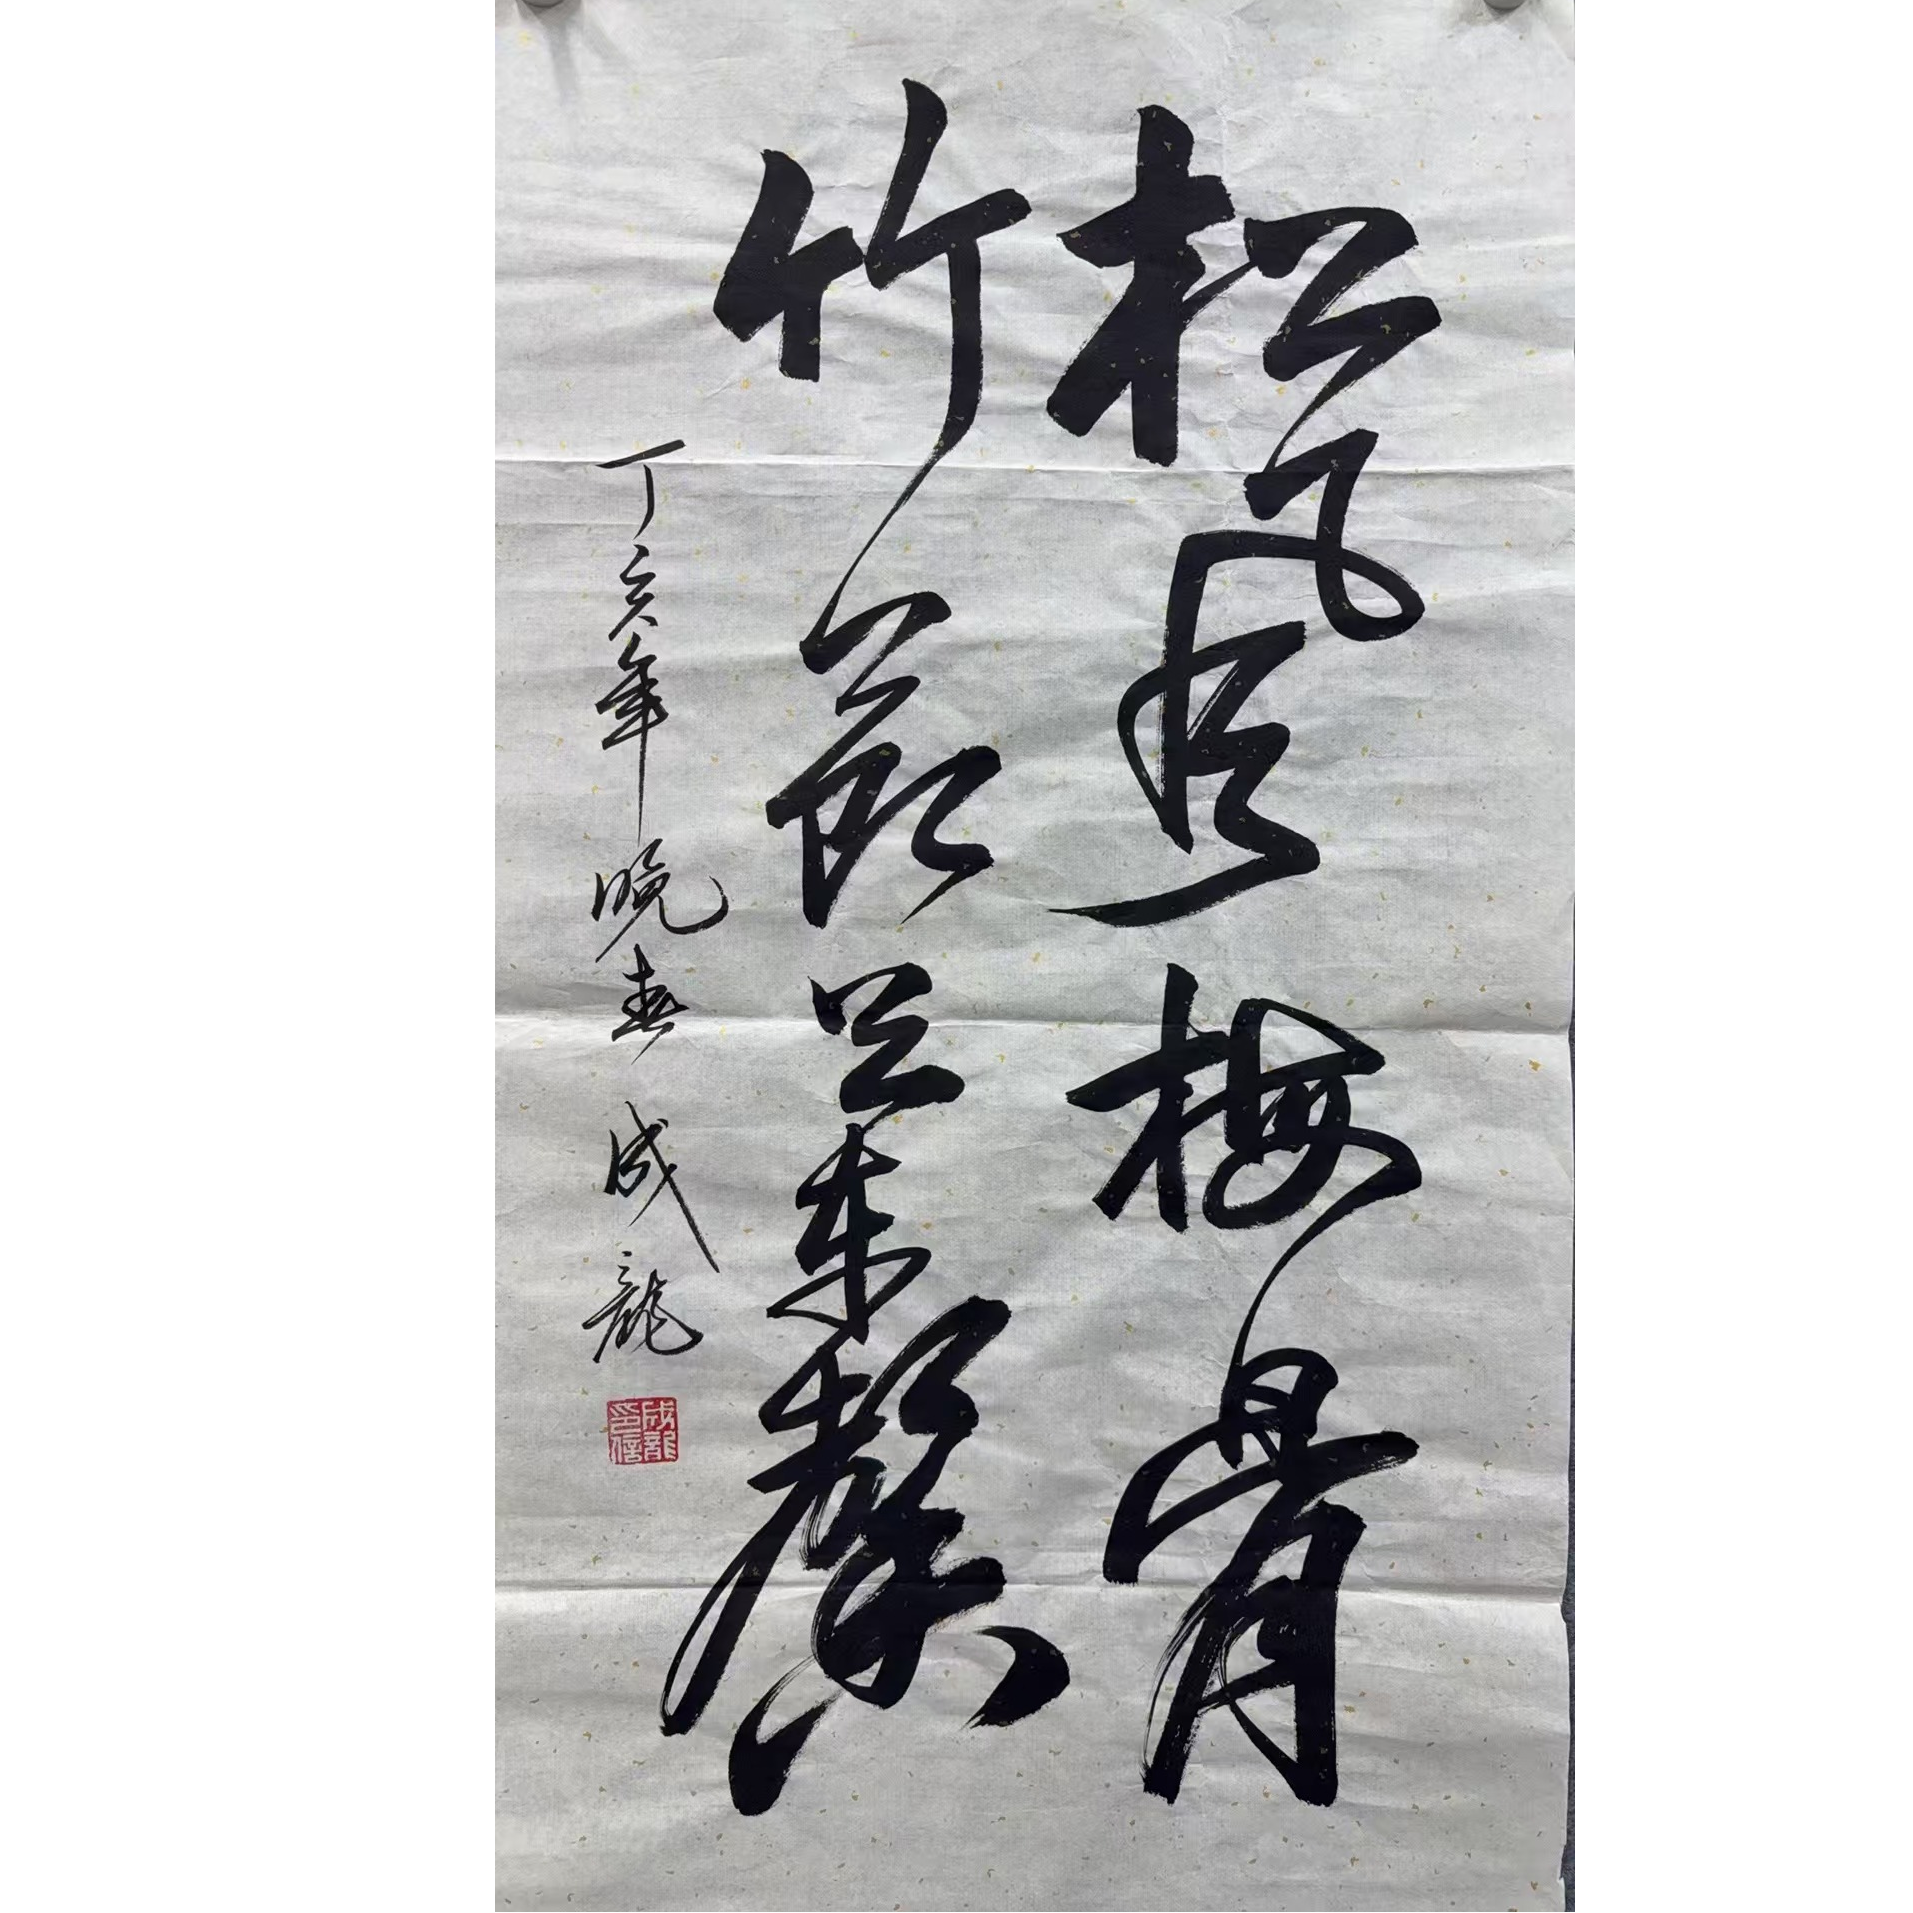 松风梅骨
竹节兰馨
丁亥年晚春 成龍
成龍印信